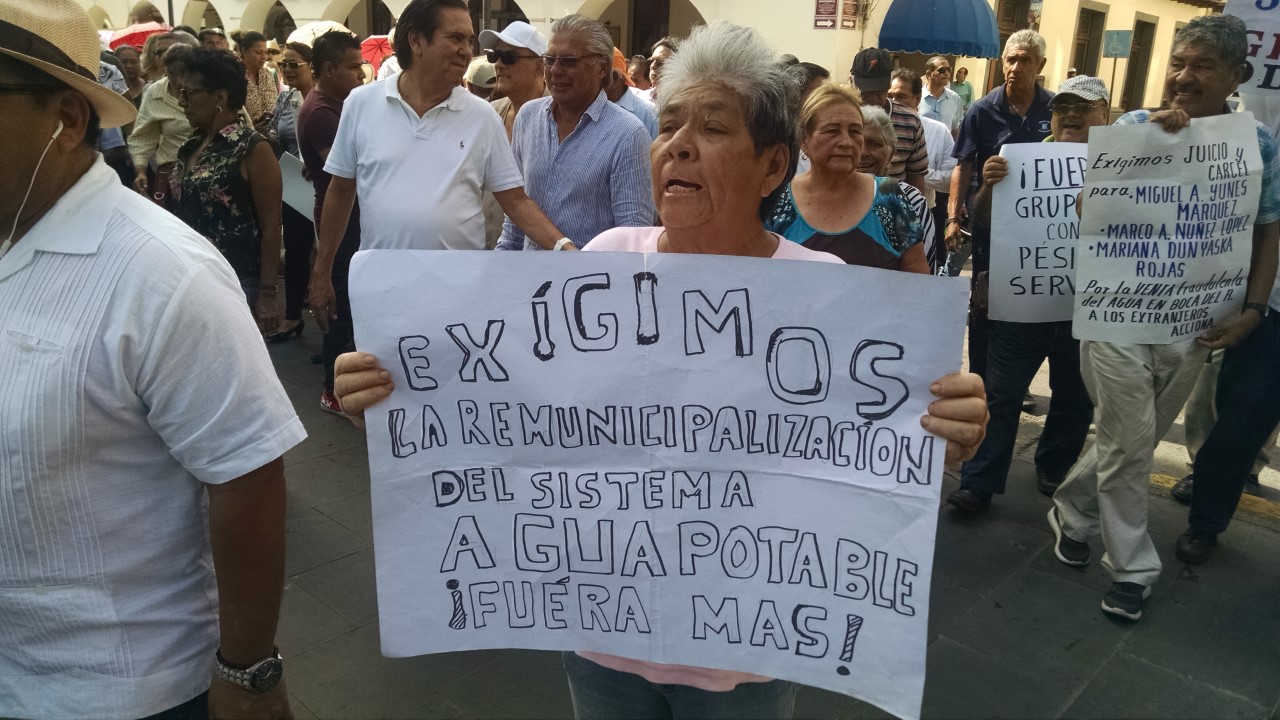 EXÍGIMOS
LA REMUNICIPALIZACÍON
DEL SISTEMA
AGUA POTABLE
¡FUÉRA MAS!
¡FUER
GRUP
CON
PÉSI
SERV
Exigimos JUICIO y
CARCEL
para. MIGUEL A. YUNES
MARQUEZ
• MARCO A. NUÑEZ LÓPEZ
• MARIANA DUNYASKA
ROJAS
Por la VENTA fraudalenta
del AGUA EN BOCA DEL R.
A LOS EXTRANJEROS
ACCIONA.